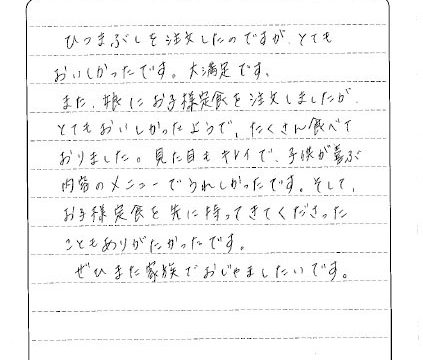 ひつまぶしを注文したのですが、とても
おいしかったです。大満足です。
また、娘にお子様定食を注文しましたが、
とてもおいしかったようで、たくさん食べて
おりました。見た目もキレイで、子供が喜ぶ
内容のメニューでうれしかったです。そして、
お子様定食を先に持ってきてくださった
こともありがたかったです。
ぜひまた家族でおじゃましたいです。